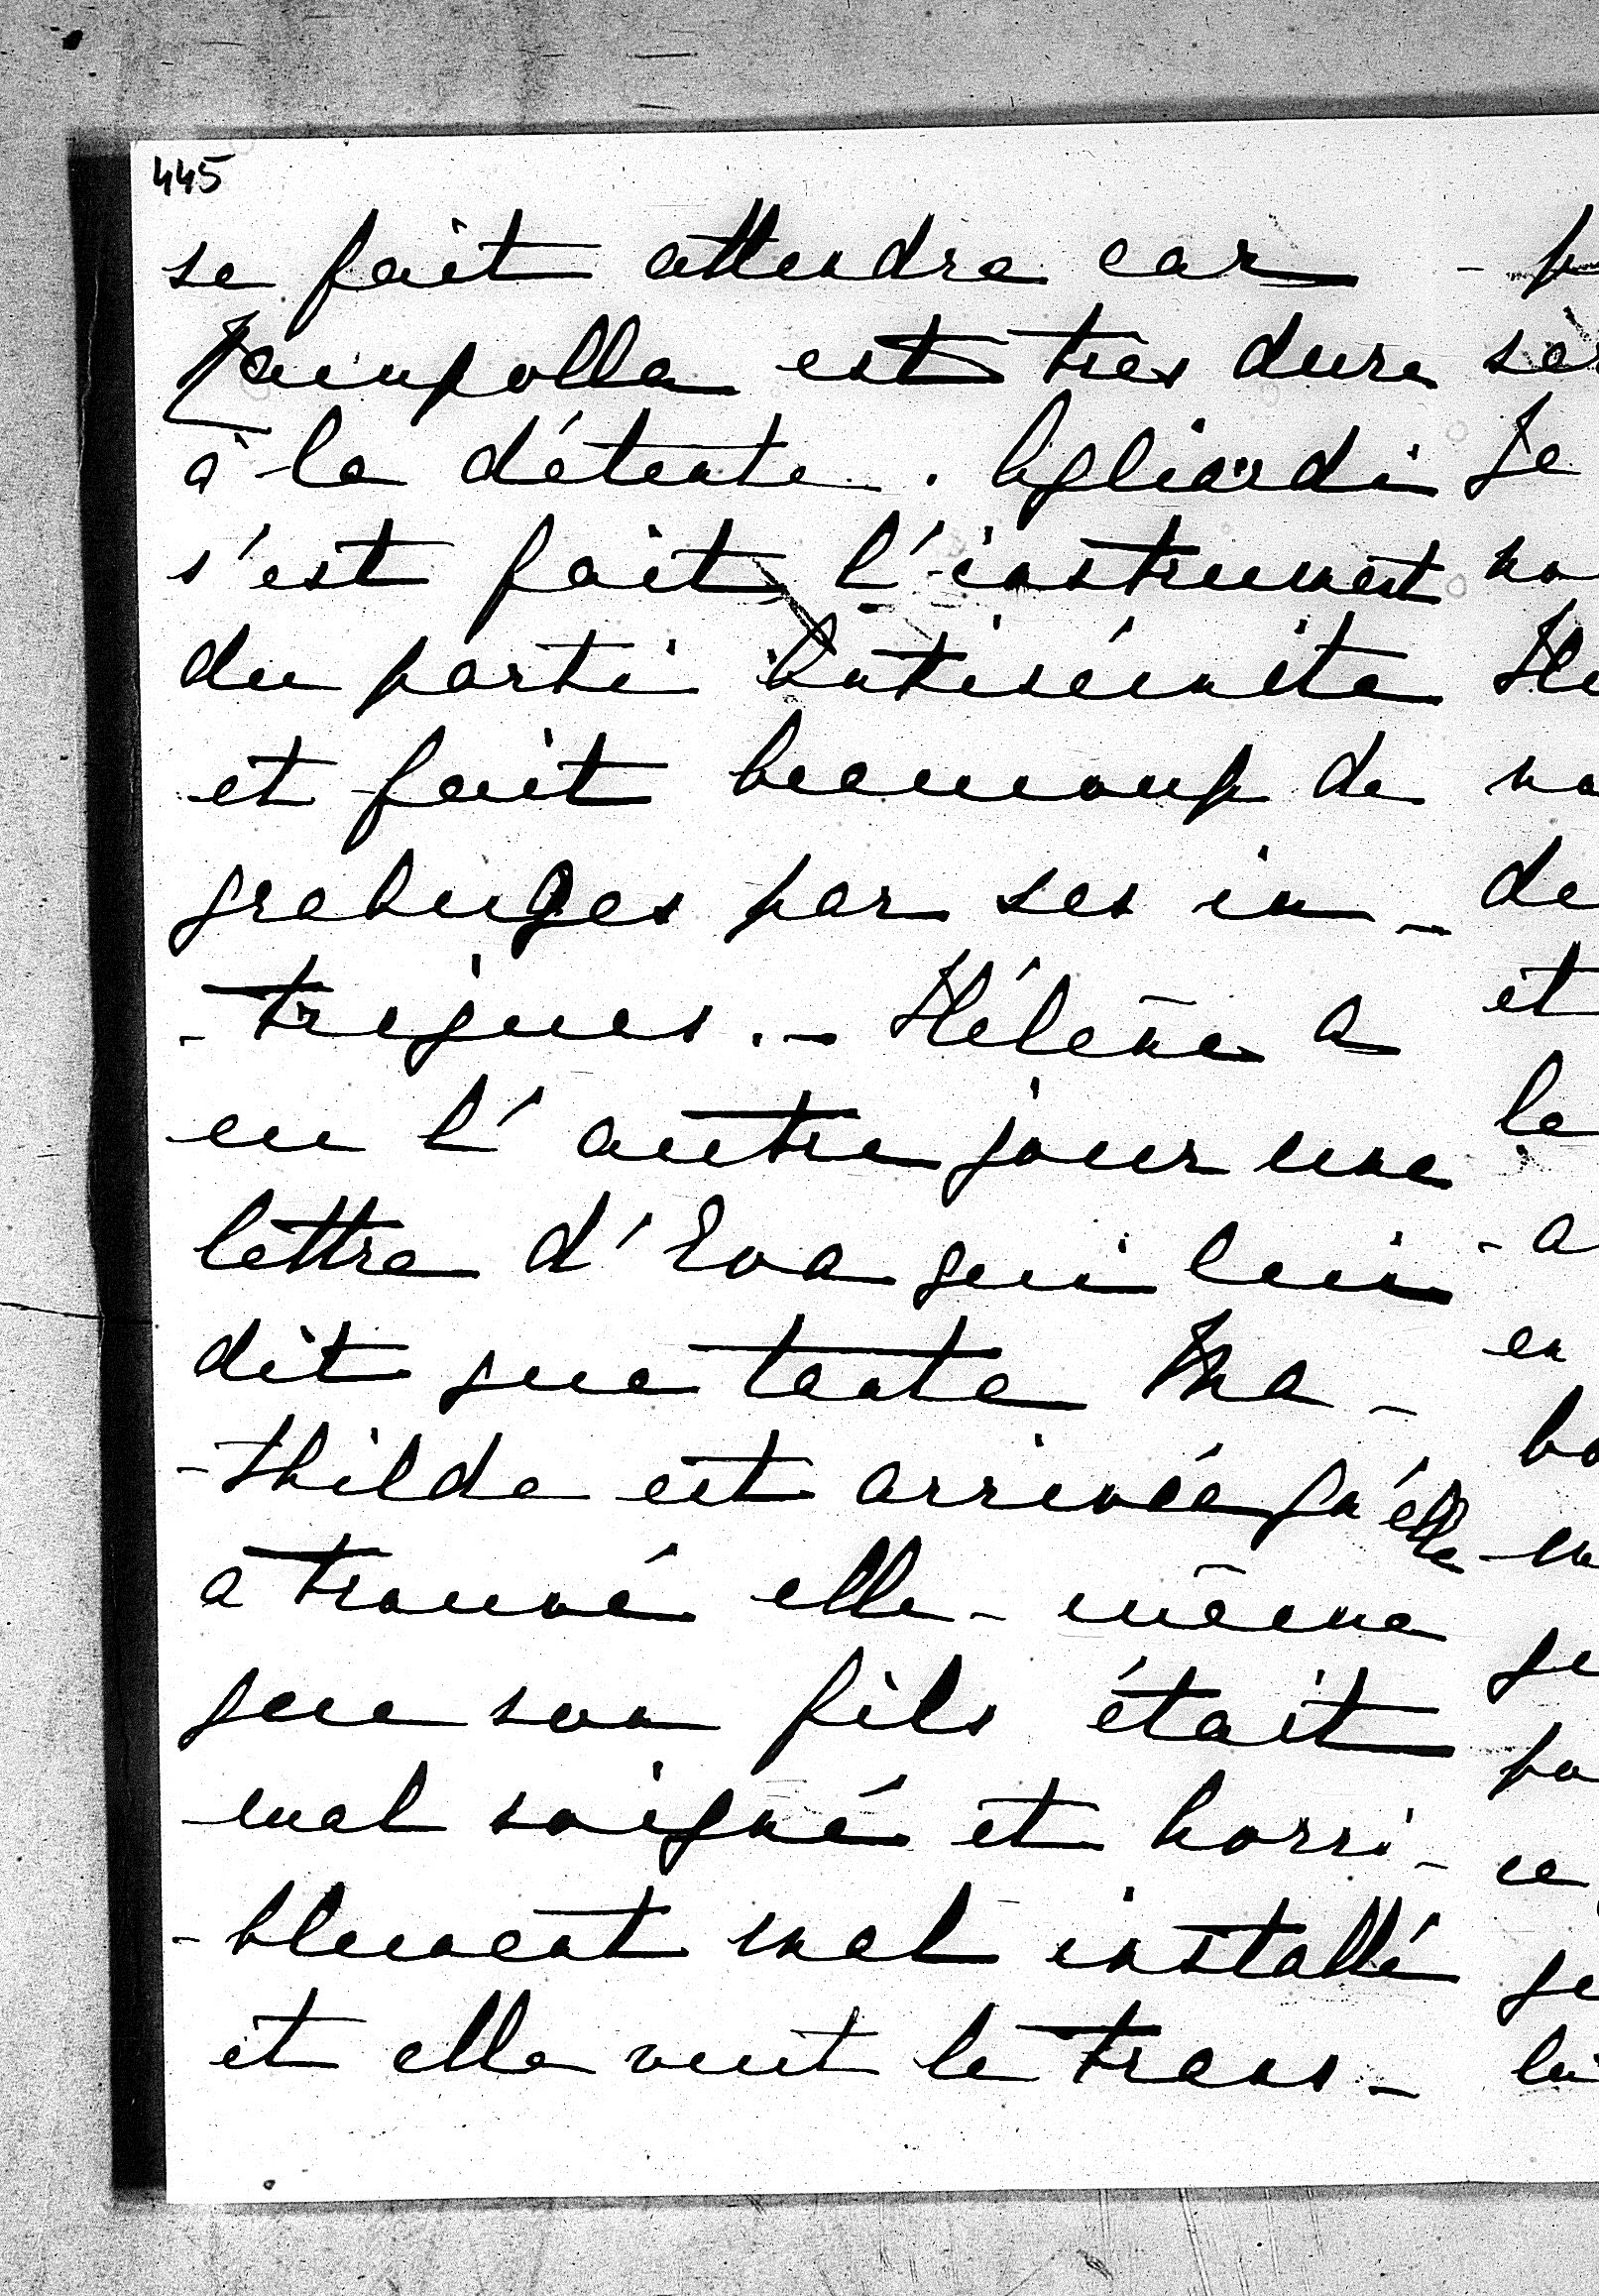 445
se fait attendre car
Rampolla est très dure
à la détente. Agliardi
s'est fait l'instrument
du parti Antisémite
et fait beaucoup de
grabuges par ses in-
-trigues. - Hélène a
eu l'autre jour une
lettre d'Eva qui lui
dit que tante Ma-
-thilde est arrivée qu'elle
a trouvé elle-même
que son fils était
mal soigné et horri-
-blement mal installé
et elle veut le trans-